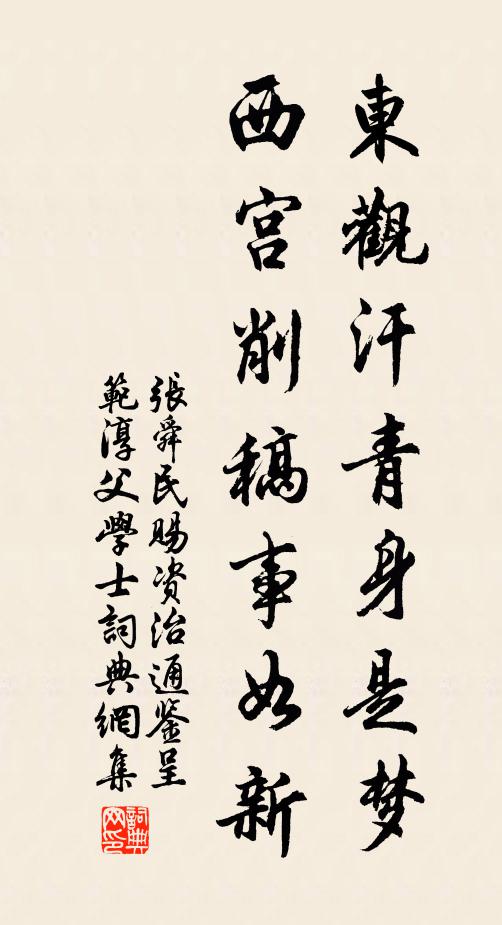 東觀汗青身是梦
西宫削稿事如新
張舜民賜资治通鉴呈
範淳父學士詞典網集
詞典
网印